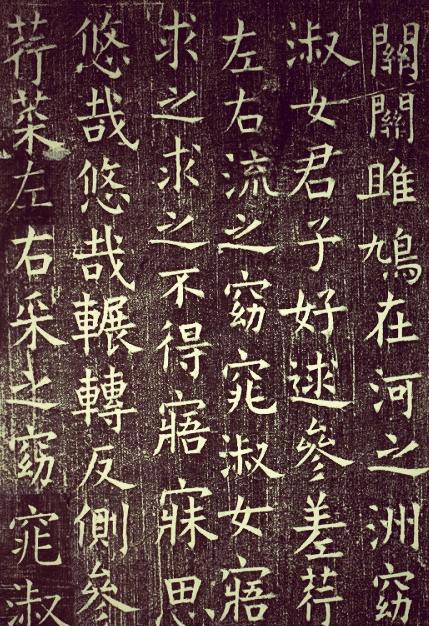 關關雎鳩在河之洲窈
淑女君子好逑參差荇
左右流之窈窕淑女寤
求之求之不得寤寐思
悠哉悠哉輾轉反側參
荇菜左右采之窈窕淑